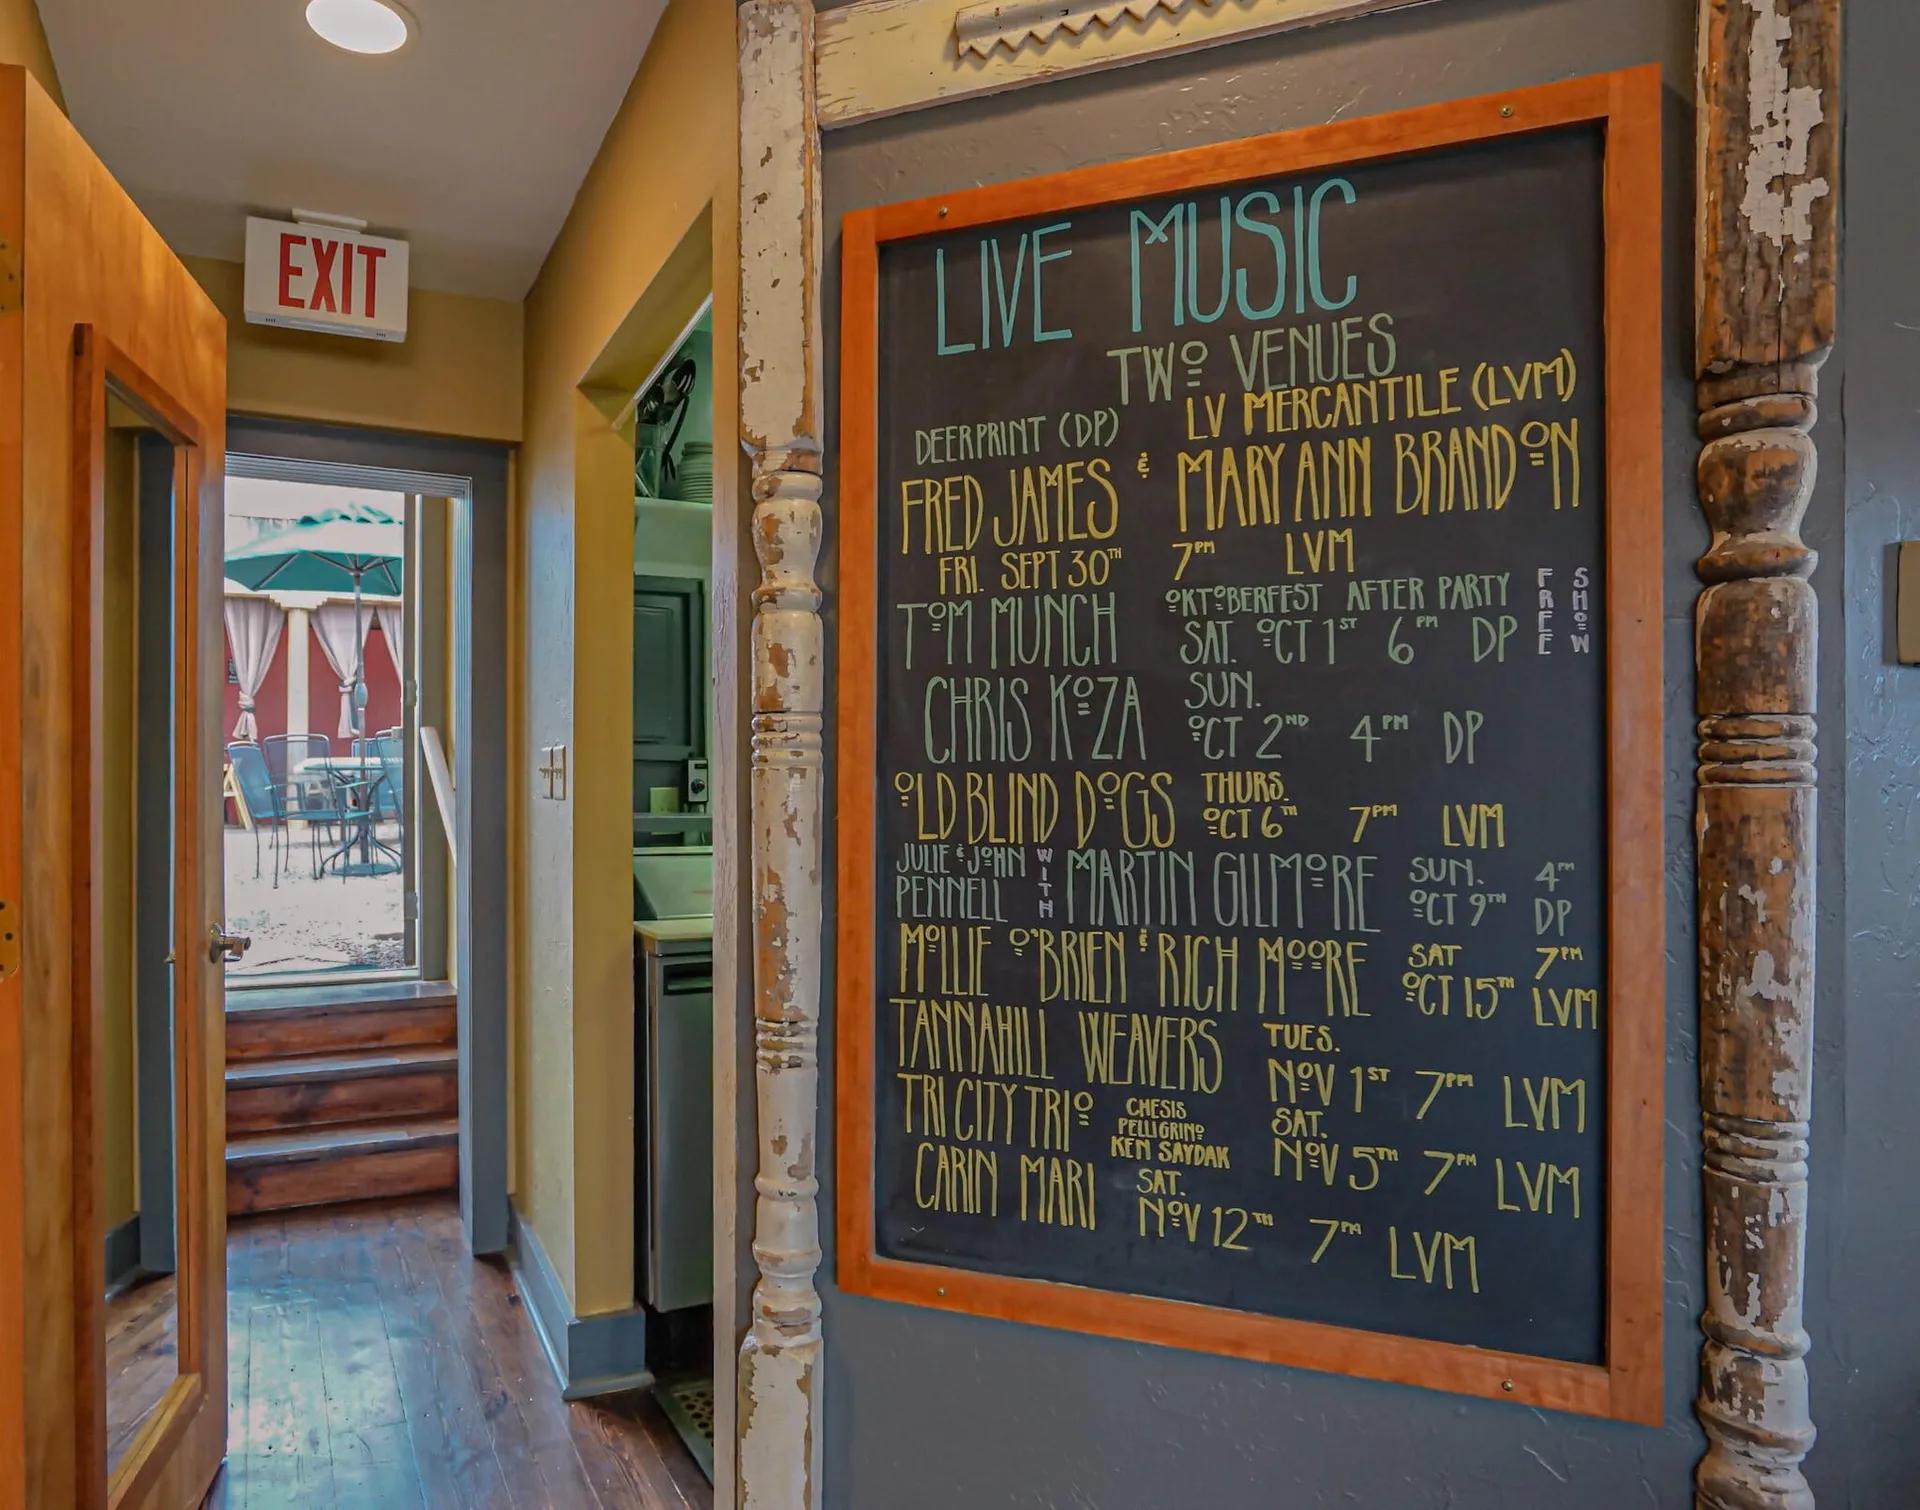 EXIT
LIVE MUSIC
TWO VENUES
DEERPRINT (DP) LV MERCANTILE (LVM)
FRED JAMES & MARY ANN BRANDON
FRI. SEPT 30TH 7PM LVM
TOM MUNCH OKTOBERFEST AFTER PARTY
SAT. OCT 1ST 6PM DP FREE SHOW
CHRIS KOZA SUN.
OCT 2ND 4PM DP
OLD BLIND DOGS THURS.
OCT 6TH 7PM LVM
JULIE & JOHN PENNELL WITH MARTIN GILMORE SUN. OCT 9TH 4PM DP
MOLLIE O'BRIEN & RICH MOORE SAT OCT 15TH 7PM LVM
TANNAHILL WEAVERS TUES.
NOV 1ST 7PM LVM
TRI CITY TRIO CHESIS PELLIGRINO KEN SAYDAK SAT.
NOV 5TH 7PM LVM
CARIN MARI SAT.
NOV 12TH 7PM LVM